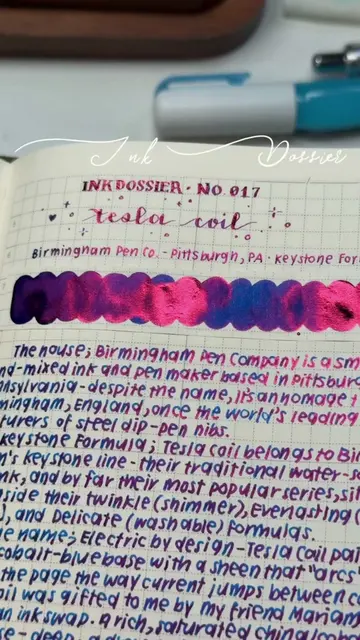 Ink Dossier
INKDOSSIER · NO. 017
tesla coil
Birmingham Pen Co. - Pittsburgh, PA · Keystone For
The house; Birmingham Pen Company is a sm
nd-mixed ink and pen maker based in Pittsbur
nsylvania - despite the name, it's an homage t
mingham, England, once the world's leading
turers of steel dip-pen nibs.
Keystone Formula; Tesla Coil belongs to Bir
m's keystone line - their traditional water-s
nk, and by far their most popular series, sit
side their Twinkle (shimmer), Everlasting (
), and Delicate (washable) formulas.
e name; Electric by design - Tesla Coil pai
cobalt-blue base with a sheen that "arcs"
the page the way current jumps between c
oil was gifted to me by my friend Mariam
an ink swap. A rich, saturated
se - deep,